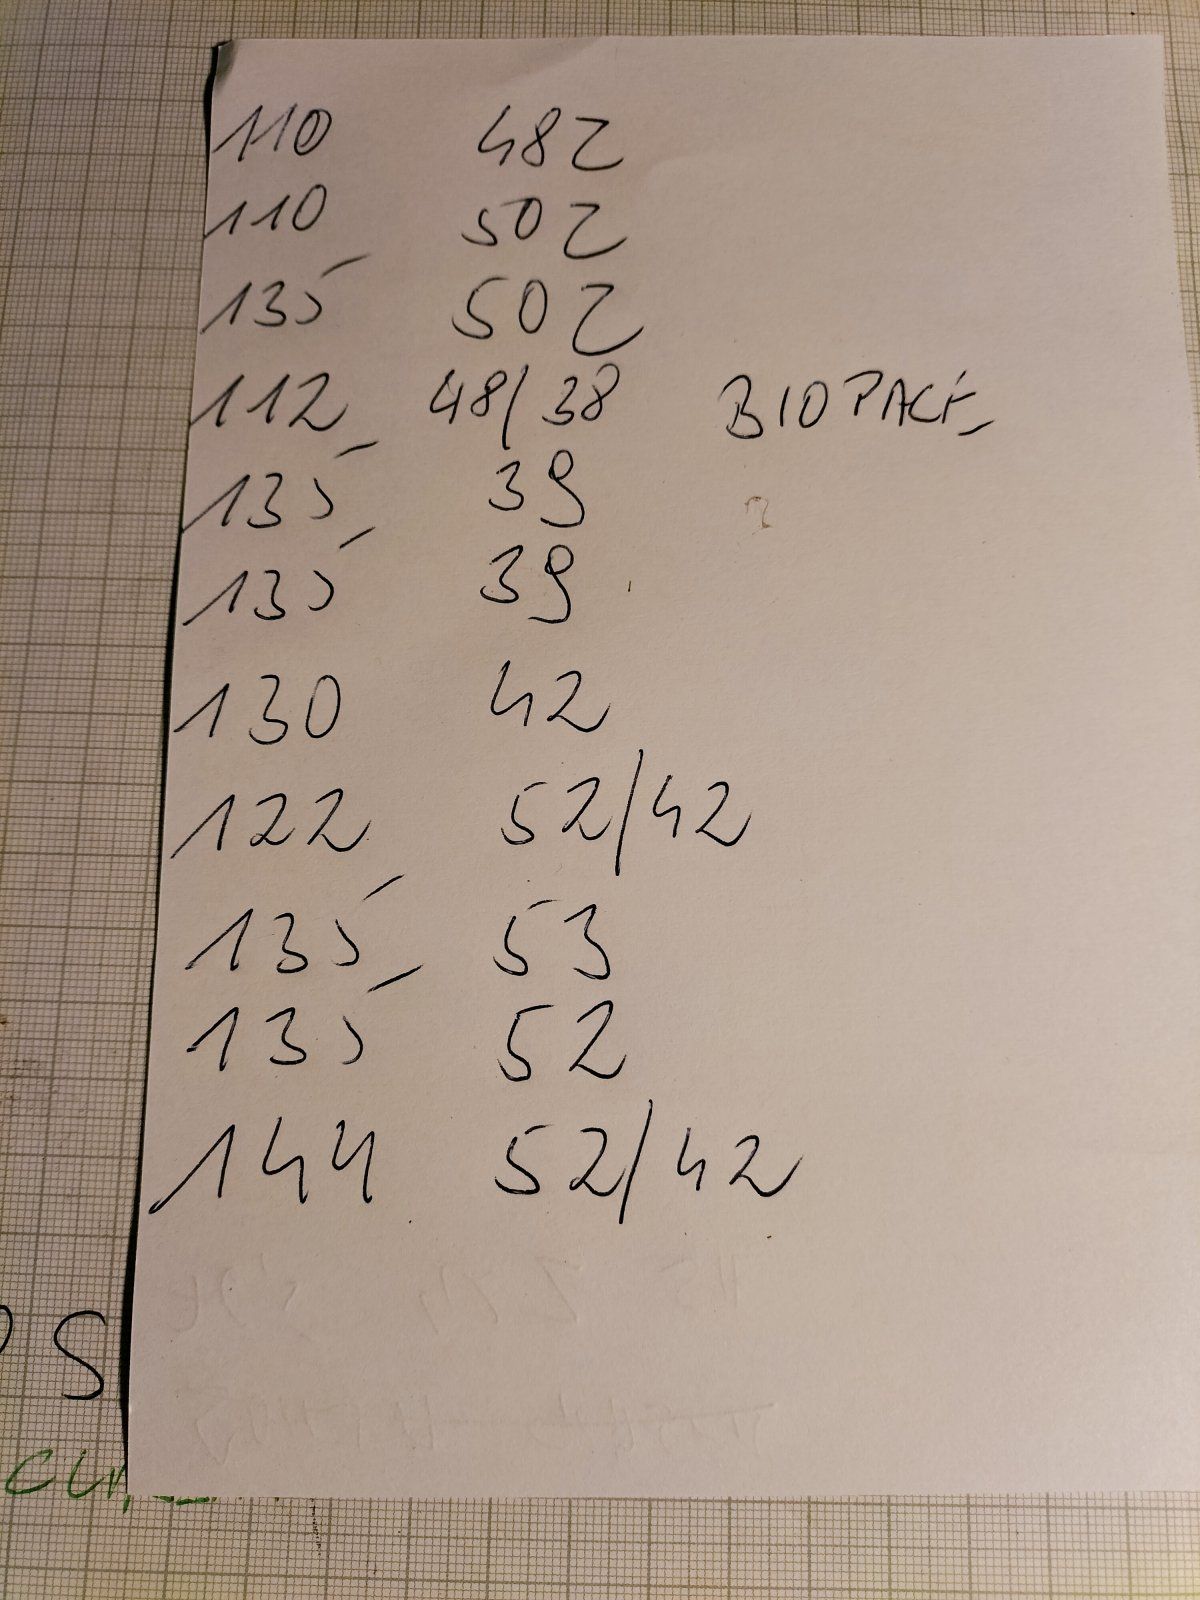 110 48Z
110 50Z
135 50Z
112 48/38 BIOPACE
135 39
135 39
130 42
122 52/42
135 53
135 52
144 52/42
S